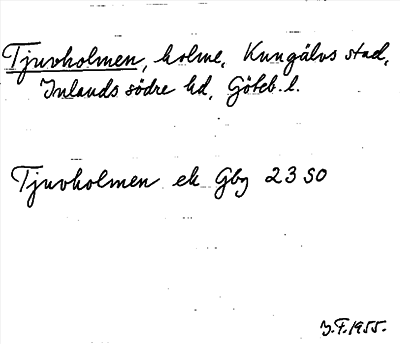 Tjuvholmen, holme, Kungälvs stad,
Inlands södre hd, Göteb. l.
Tjuvholmen ek Gbg 23 SO
J.F. 1955.